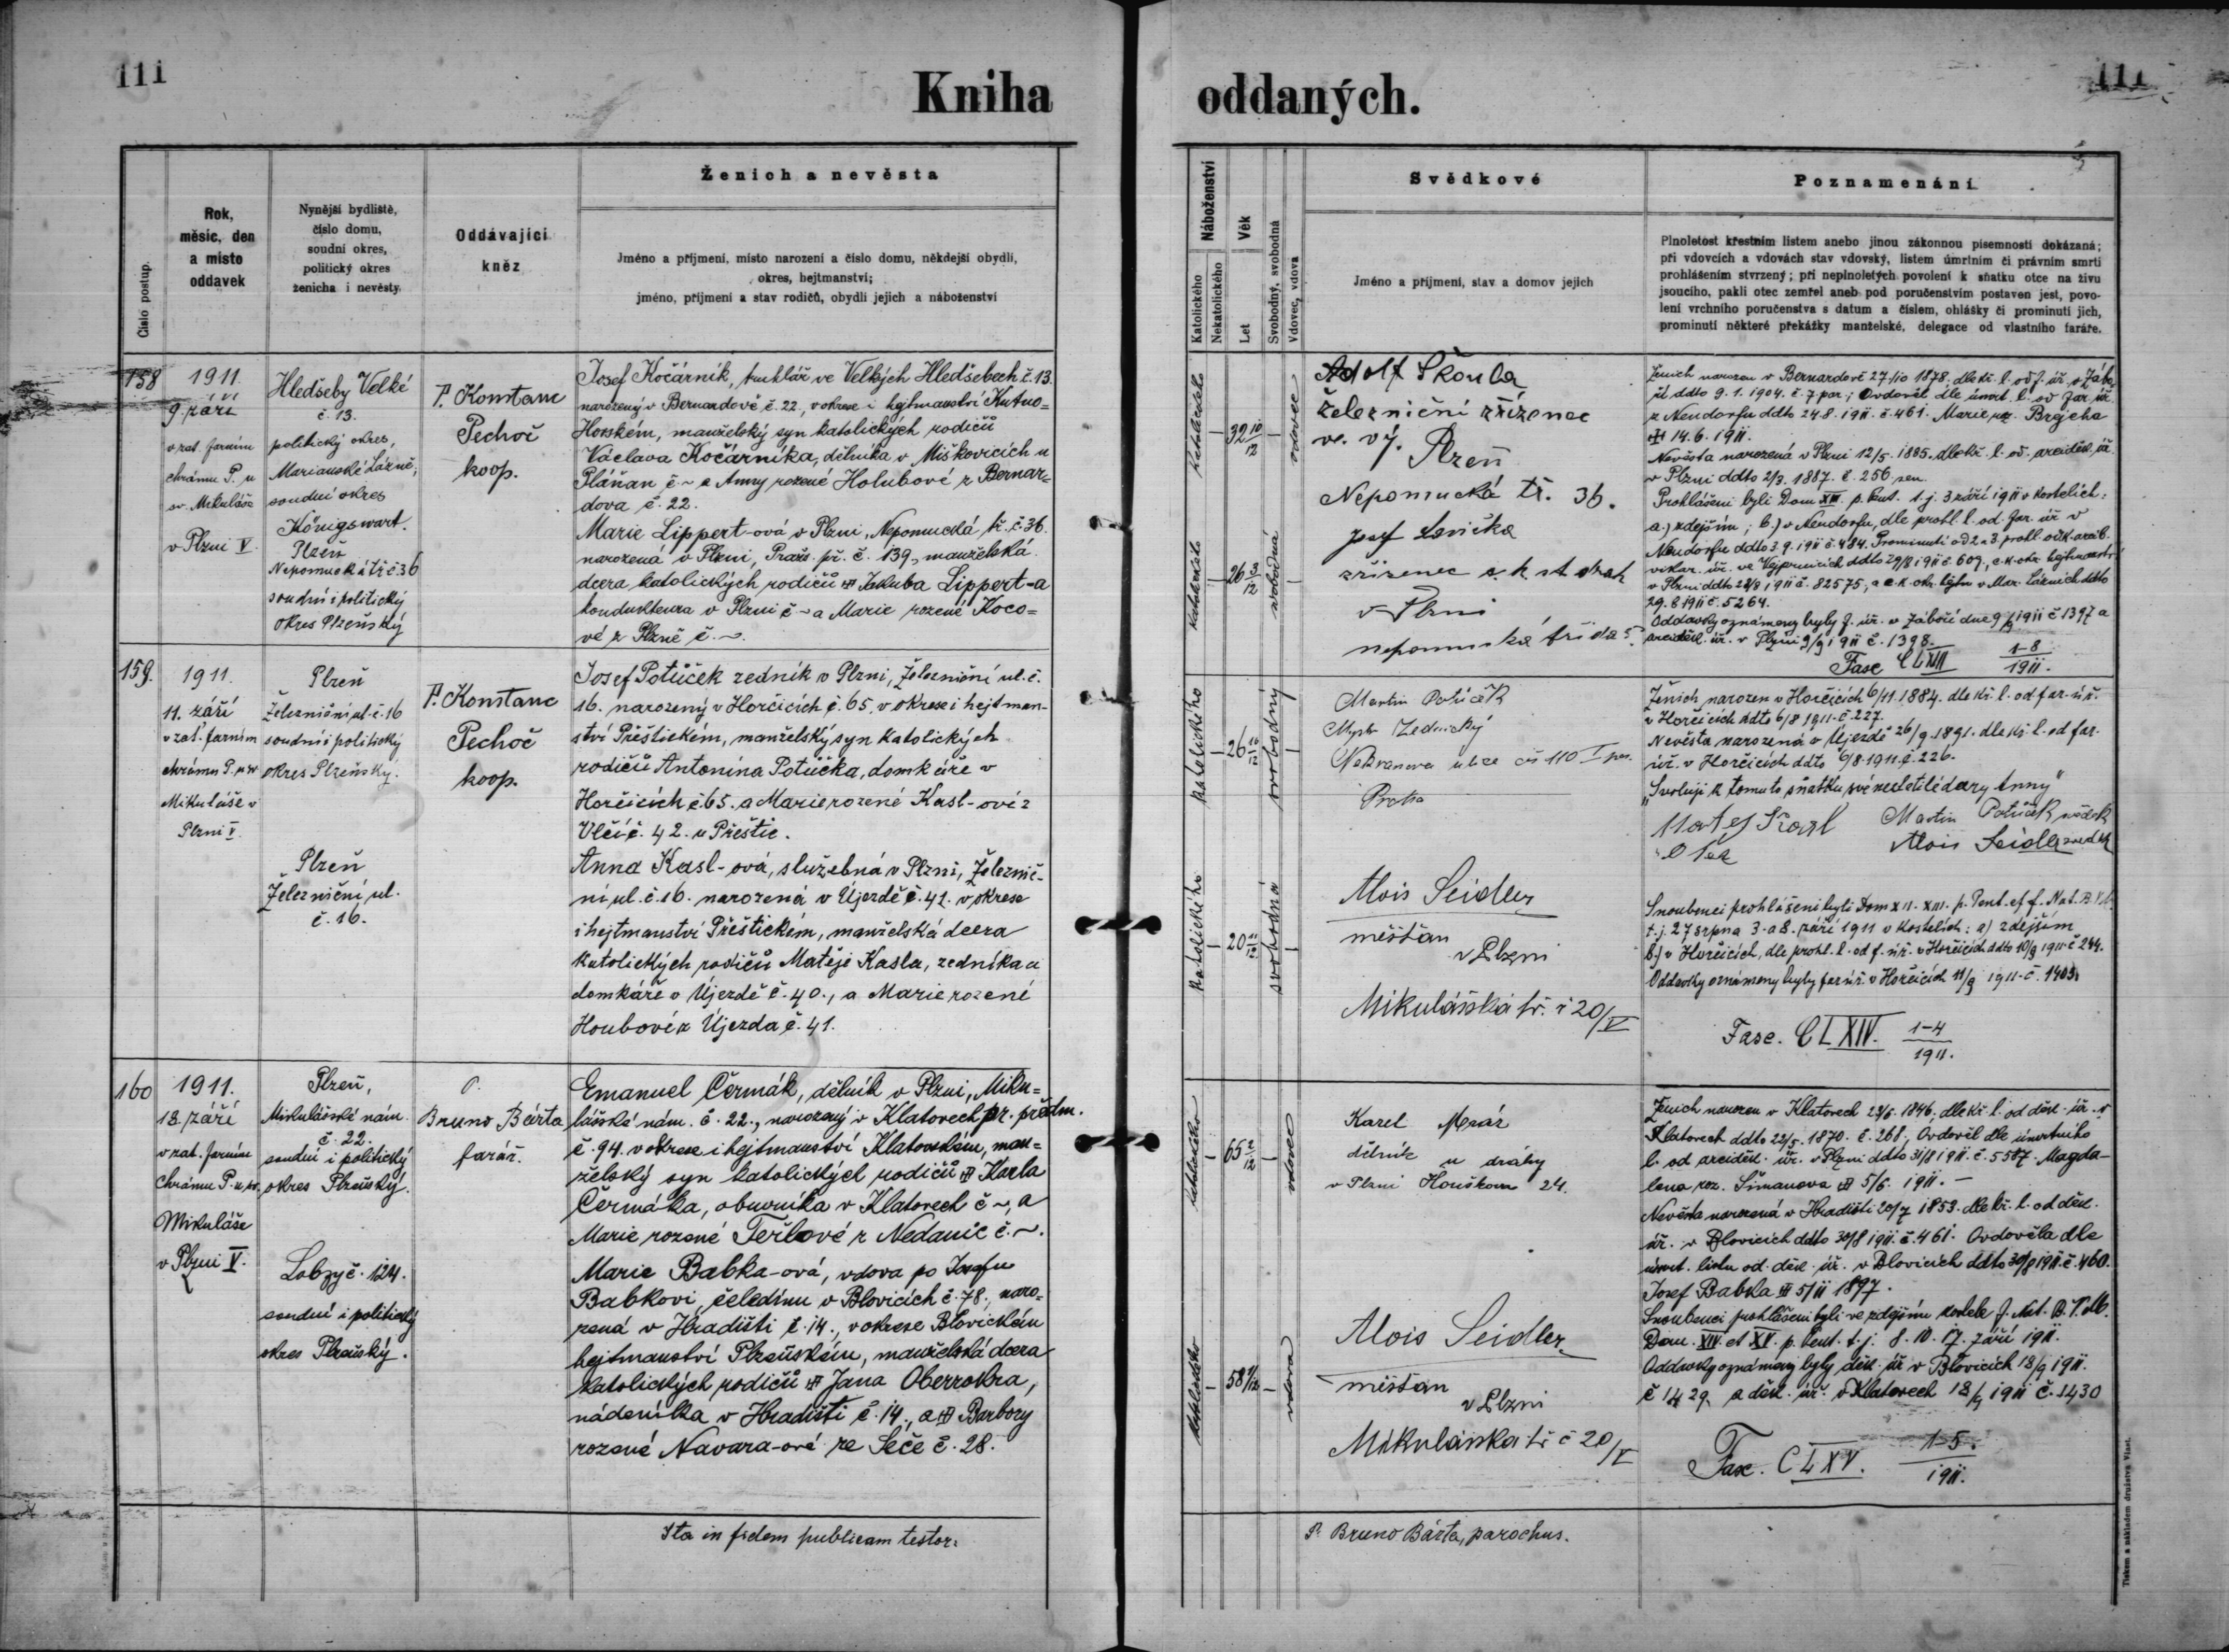 111
Kniha oddaných.
111
Číslo postup.
Rok,
měsíc, den
a místo
oddavek
Nynější bydliště,
číslo domu,
soudní okres,
politický okres
ženicha i nevěsty.
Oddávající
kněz
Ženich a nevěsta
Jméno a příjmení, místo narození a číslo domu, někdejší obydlí,
okres, hejtmanství;
jméno, příjmení a stav rodičů, obydlí jejich a náboženství
Náboženství
Katolického
Nekatolického
Věk
Let
Svobodný, svobodná
Vdovec, vdova
Svědkové
Jméno a příjmení, stav a domov jejich
Poznamenání
Plnoletost křestním listem anebo jinou zákonnou písemností dokázaná;
při vdovcích a vdovách stav vdovský, listem úmrtním či právním smrti
prohlášením stvrzený; při neplnoletých povolení k sňatku otce na živu
jsoucího, pakli otec zemřel aneb pod poručenstvím postaven jest, povo-
lení vrchního poručenstva s datum a číslem, ohlášky či prominutí jich,
prominutí některé překážky manželské, delegace od vlastního faráře.
158
1911.
9. září
v zat. farním
chrámu P. u
sv. Mikuláše
v Plzni V.
Hledšeby Velké
č. 13.
politický okres,
Marianské Lázně,
soudní okres
Königswart.
Plzeň
Nepomucká tř č 36
soudní i politický
okres Plzeňský
P. Konstanc
Pechoč
koop.
Josef Kočárník, truhlář ve Velkých Hledšebech č. 13.
narozený v Bernardově č. 22, v okrese i hejtmanství Kutno=
Horském, manželský syn katolických rodičů
Václava Kočárníka, dělníka v Miškovicích u
Pláňan č ~ a Anny rozené Holubové z Bernar=
dova č. 22.
Marie Lippert-ová v Plzni, Nepomucká tř. č 36.
narozená v Plzni, Praž. př. č. 139, manželská
dcera katolických rodičů Jakuba Lippert-a
kondukteura v Plzni č ~ a Marie rozené Koco=
vé z Plzně č. ~.
katolického
32 10/12
vdovec
katolického
26 3/12
svobodná
Adolf Škoula
železniční zřízenec
ve. vý. Plzeň
Nepomucká tř. 36.
Josef
zřízenec c. k. st drah
v Plzni
nepomucká třída
Ženich narozen v Bernardově 27/10 1878. dle kř. l. od f. úř. v Zábo=
ří ddto 9. 1. 1904. č. 7 par; Ovdověl dle úmrt. l. od far úř.
z Neudorfu ddto 24 8. 1911. č. 461. Marie roz. Brejcha
14. 6. 1911.
Nevěsta narozená v Plzni 12/5. 1885. dle kř. l. od arciděk. úř.
v Plzni ddto 2/3. 1887. č. 256
Prohlášeni byli Dom XIII. p. Pent. t. j. 3 září 1911 v kostelích:
a.) zdejším; b.) v Neudorfu, dle prohl. l. od far. úř. v
Neudorfu ddto 3 9. 1911 č. 484. Prominutí od 2 a 3. prohl.
vikar. úř. ve Vejprnicích ddto 29/8 1911 č 607, c. k. okr. hejtmanství
v Plzni ddto 28/8 1911 č. 82575, a c. k. okr. hejtm v Mar. Lázních ddto
29. 8 1911 č. 5264.
Oddavky oznámeny byly f. úř. v Záboří dne 9/9 1911 č 1397 a
arciděk. úř. v Plzni 9/9 1911 č. 1398.
Fasc CLXIII 1-8/1911.
159.
1911.
11. září
v zat. farním
chrámu P. u sv
Mikuláše v
Plzni V.
Plzeň
Železniční ul. č. 16
soudní i politický
okres Plzeňský.
Plzeň
Železniční ul.
č. 16.
P. Konstanc
Pechoč
koop.
Josef Potůček zedník v Plzni, Železniční ul. č.
16. narozený v Horčicích č. 65, v okrese i hejtman-
ství Přeštickém, manželský syn katolických
rodičů Antonína Potůčka, domkáře v
Horčicích č 65. a Marie rozené Kasl-ové z
Vlčí č. 42. u Přeštic.
Anna Kasl-ová, služebná v Plzni, Železnič-
ní ul. č. 16. narozená v Újezdě č. 41. v okrese
i hejtmanství Přeštickém, manželská dcera
katolických rodičů Matěje Kasla, zedníka a
domkáře v Újezdě č. 40., a Marie rozené
Houbové z Újezda č. 41.
katolického
26 10/12
svobodný
katolického
20 11/12
svobodná
Martin Potůček
Mystr Zednický
ulice čís 110 I
Praha
Alois Seidler
měšťan
v Plzni
Mikulášská tř. č 20/V
Ženich narozen v Horčicích 6/11 1884. dle kř. l. od far. úř.
v Horčicích ddto 6/8 1911. č. 227.
Nevěsta narozená v Újezdě 26/9. 1891. dle kř. l. od far.
úř. v Horčicích ddto 6/8. 1911. č. 226.
"Svoluji k tomuto sňatku své nezletilé dcery Anny"
Matěj Kasl
Otec
Martin Potůček svědek
Alois Seidler svědek
Snoubenci prohlášeni byli Dom XII. XIII. p. Pent. et f. Nat. B. V. M.
t. j. 27 srpna 3. a 8. září 1911 v kostelích: a) zdejším
b.) v Horčicích, dle prohl. l. od f. úř. v Horčicích ddto 10/9 1911 č 244.
Oddavky oznámeny byly far úř. v Horčicích 11/9 1911. č. 1403.
Fasc. CLXIV. 1-4/1911.
160
1911.
18 září
v zat. farním
chrámu P. u sv.
Mikuláše
v Plzni V.
Plzeň,
Mikulášské nám.
č. 22.
soudní i politický
okres Plzeňský.
Lobzy č. 124.
soudní i politický
okres Plzeňský.
P.
Bruno Bárta
farář.
Emanuel Čermák, dělník v Plzni, Miku=
lášské nám. č. 22., narozený v Klatovech pr. předm.
č. 94. v okrese i hejtmanství Klatovském, man=
želský syn katolických rodičů Karla
Čermáka, obuvníka v Klatovech č ~, a
Marie rozené Teřlové z Nedanic č. ~.
Marie Babka-ová, vdova po Josefu
Babkovi, čeledínu v Blovicích č. 78., naro=
zená v Hradišti č. 14., v okrese Blovickém
hejtmanství Plzeňském, manželská dcera
katolických rodičů Jana Oberrokra,
nádeníka v Hradišti č. 14., a Barbory
rozené Navara-ové ze Seče č. 28.
katolického
65 2/12
vdovec
katolického
58 1/12
vdova
Karel Mráz
dělník u dráhy
v Plzni Houškova 24.
Alois Seidler
měšťan
v Plzni
Mikulášská tř č 20/V
Ženich narozen v Klatovech 23/6. 1846. dle kř. l. od děk. úř. v
Klatovech ddto 22/5. 1870. č. 268., Ovdověl dle úmrtního
l. od arciděk. úř. v Plzni ddto 31/8 1911. č. 5587. Magda-
lena roz. Šimanova 5/6. 1911. —
Nevěsta narozená v Hradišti 20/7 1853. dle kř. l. od děk.
úř. v Blovicích ddto 30/8 1911. č. 461. Ovdověla dle
úmrt. listu od. děk. úř. v Blovicích ddto 30/8 1911. č. 460.
Josef Babka 5/11 1897.
Snoubenci prohlášeni byli ve zdejším kostele f. Nat. B. V. M.
Dom. XIV et XV. p. Pent. t. j. 8. 10. 17. září 1911.
Oddavky oznámeny byly děk. úř v Blovicích 18/9 1911.
č 1429. a děk. úř. v Klatovech 18/9 1911 č. 1430
Fasc. CLXV. 1-5/1911.
Ita in fidem publicam testor:
P. Bruno Bárta, parochus.
Tiskem a nákladem družstva Vlast.